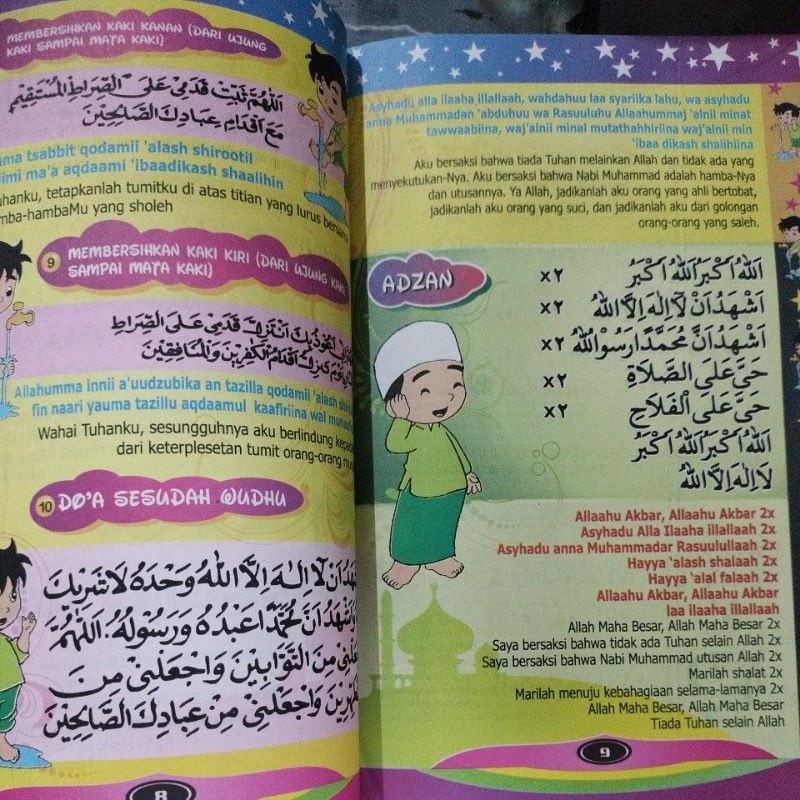 MEMBERSIHKAN KAKI KANAN (DARI UJUNG
KAKI SAMPAI MATA KAKI)
اَللّٰهُمَّ ثَبِّتْ قَدَمِيْ عَلَى الصِّرَاطِ الْمُسْتَقِيْمِ
مَعَ اَقْدَامِ عِبَادِكَ الصَّالِحِيْنَ
tsabbit qodamii 'alash shirootil
ma'a aqdaami 'ibaadikash shaalihin
tetapkanlah tumitku di atas titian yang lurus
yang sholeh
9
MEMBERSIHKAN KAKI KIRI (DARI UJUNG KAKI
SAMPAI MATA KAKI)
اَنْ تَزِلَّ قَدَمِيْ عَلَى الصِّرَاطِ
اَقْدَامُ الْكٰفِرِيْنَ وَالْمُنَافِقِيْنَ
Allahumma innii a'uudzubika an tazilla qodamii 'alash
fin naari yauma tazillu aqdaamul kaafiriina wal
Wahai Tuhanku, sesungguhnya aku berlindung
dari keterplesetan tumit orang-orang
10
DO'A SESUDAH WUDHU
اَنْ لَا اِلٰهَ اِلَّا اللهُ وَحْدَهُ لَا شَرِيْكَ
وَاَشْهَدُ اَنَّ مُحَمَّدًا عَبْدُهُ وَرَسُوْلُهُ. اَللّٰهُمَّ
مِنَ التَّوَّابِيْنَ وَاجْعَلْنِيْ مِنَ
وَاجْعَلْنِيْ مِنْ عِبَادِكَ الصَّالِحِيْنَ
8
Asyhadu alla ilaaha illallaah, wahdahuu laa syariika lahu, wa asyhadu
anna Muhammadan 'abduhuu wa Rasuuluhu Allaahummaj 'alnii minat
tawwaabiina, waj'alnii minal mutathahhiriina waj'alnii min
'ibaa dikash shalihiina
Aku bersaksi bahwa tiada Tuhan melainkan Allah dan tidak ada yang
menyekutukan-Nya. Aku bersaksi bahwa Nabi Muhammad adalah hamba-Nya
dan utusannya. Ya Allah, jadikanlah aku orang yang ahli bertobat,
jadikanlah aku orang yang suci, dan jadikanlah aku dari golongan
orang-orang yang saleh.
ADZAN
اَللهُ اَكْبَرُ اَللهُ اَكْبَرُ x٢
اَشْهَدُ اَنْ لَا اِلٰهَ اِلَّا اللهُ x٢
اَشْهَدُ اَنَّ مُحَمَّدًا رَسُوْلُ اللهُ x٢
حَيَّ عَلَى الصَّلَاةِ x٢
حَيَّ عَلَى الْفَلَاحِ x٢
اَللهُ اَكْبَرُ اَللهُ اَكْبَرُ
لَا اِلٰهَ اِلَّا اللهُ
Allaahu Akbar, Allaahu Akbar 2x
Asyhadu Alla Ilaaha illallaah 2x
Asyhadu anna Muhammadar Rasuulullaah 2x
Hayya 'alash shalaah 2x
Hayya 'alal falaah 2x
Allaahu Akbar, Allaahu Akbar
laa ilaaha illallaah
Allah Maha Besar, Allah Maha Besar 2x
Saya bersaksi bahwa tidak ada Tuhan selain Allah 2x
Saya bersaksi bahwa Nabi Muhammad utusan Allah 2x
Marilah shalat 2x
Marilah menuju kebahagiaan selama-lamanya 2x
Allah Maha Besar, Allah Maha Besar
Tiada Tuhan selain Allah
9